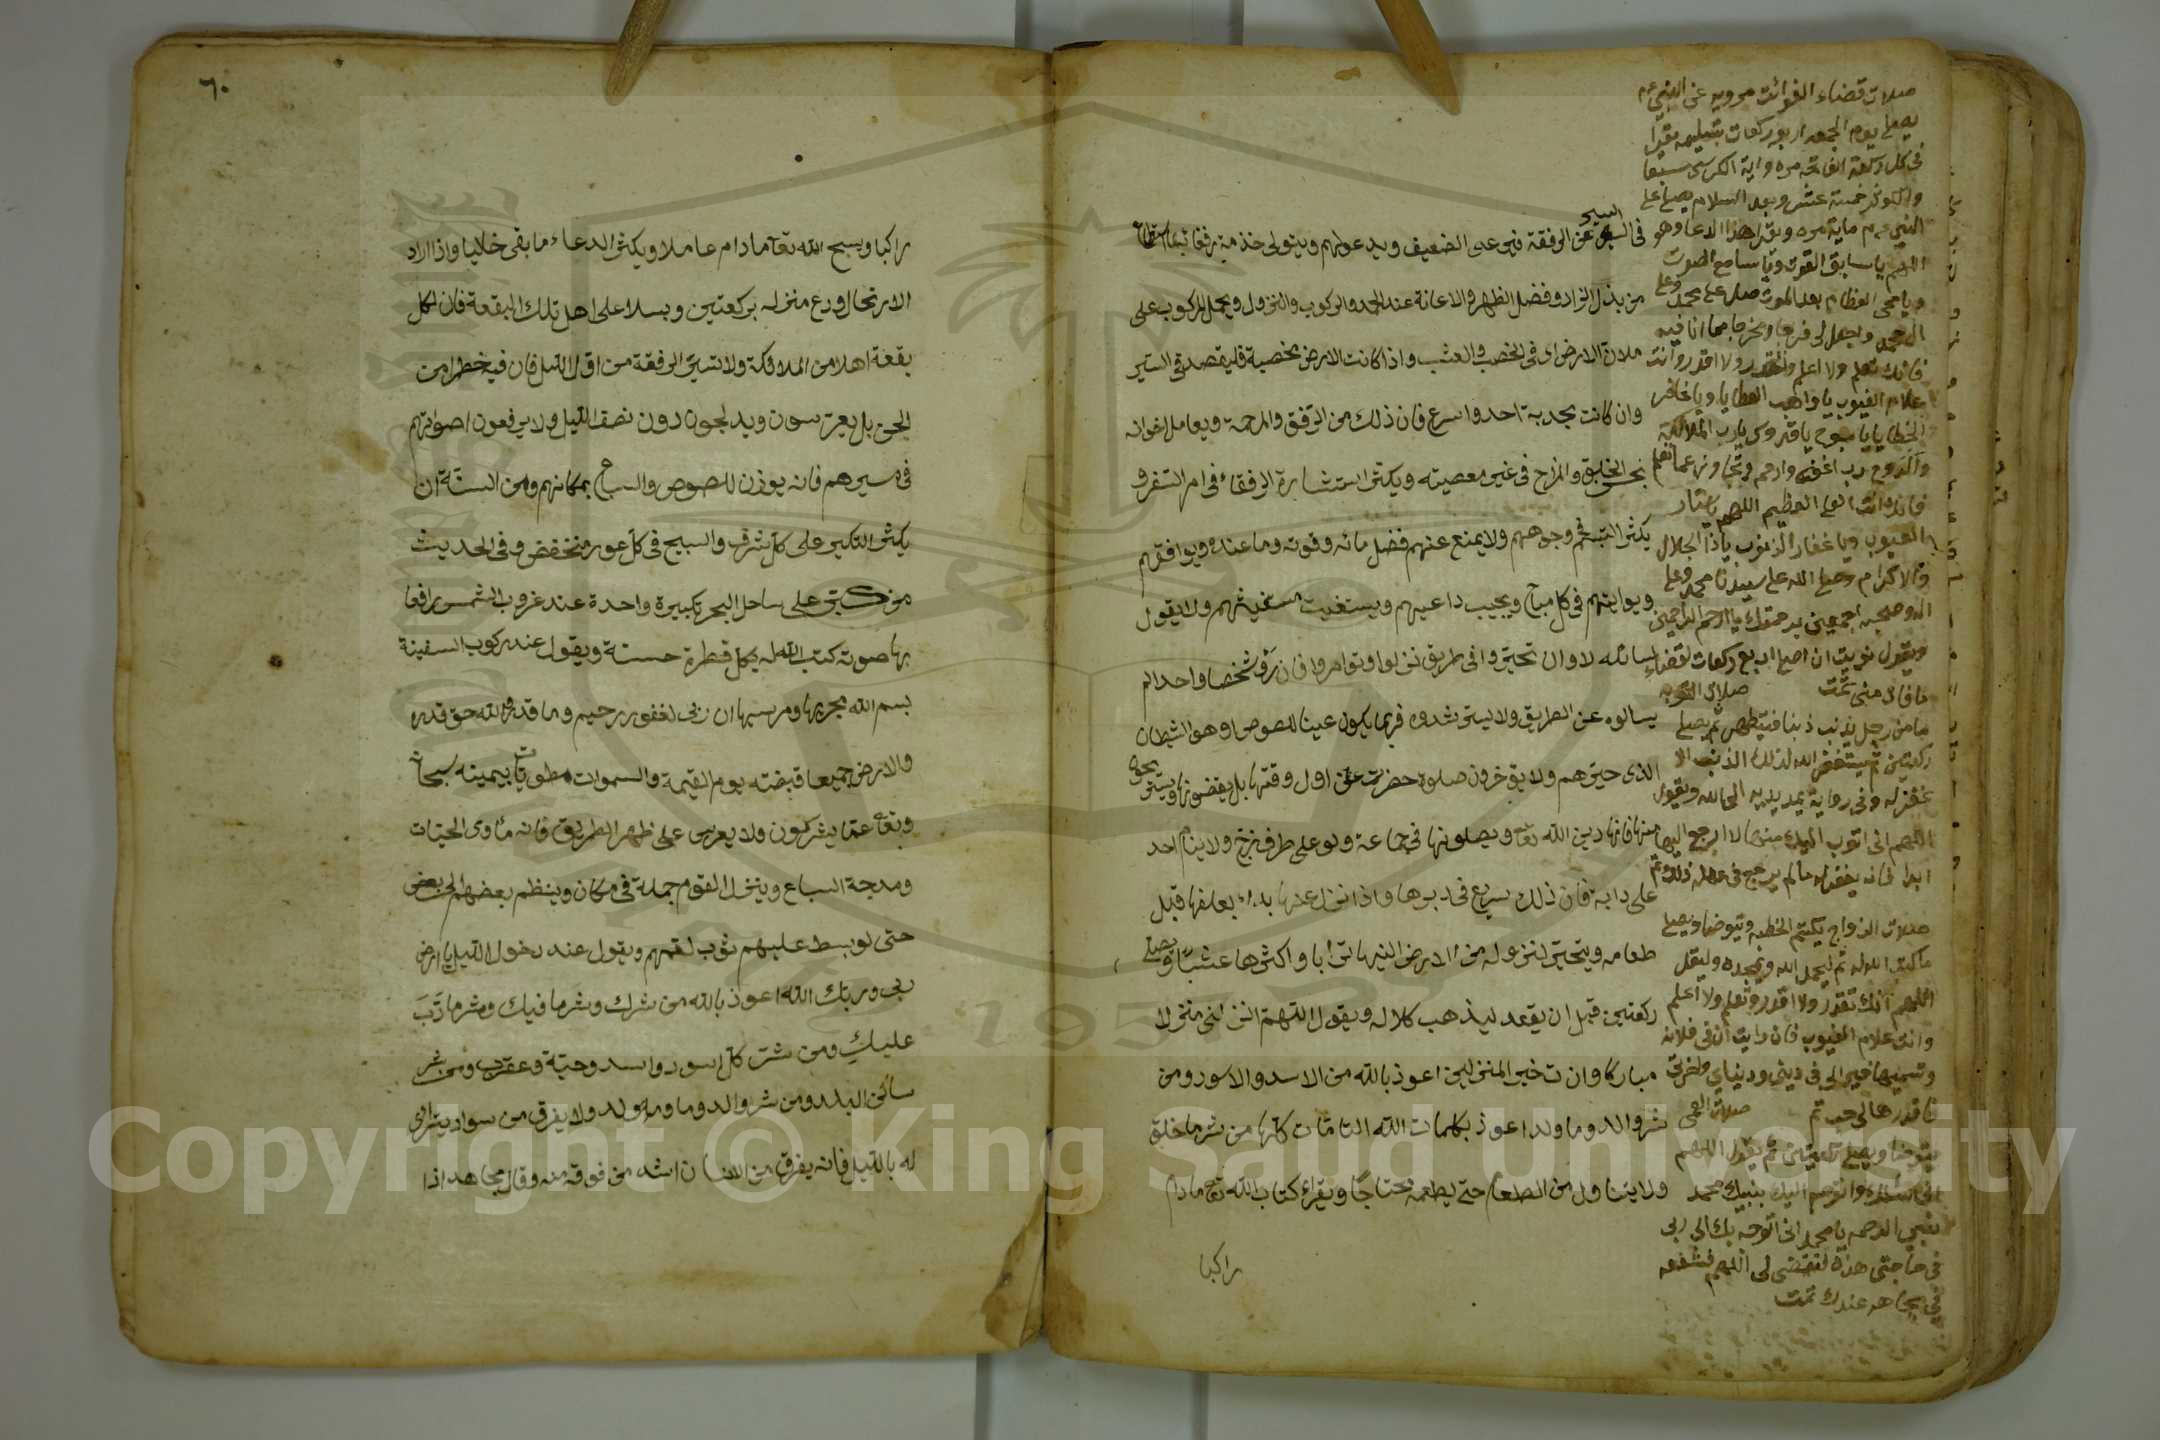 صلات قضاء الفوائت مرويه عن النبي عم
يصلي يوم الجمعه اربع ركعات بتسليمه يقرا
في كل ركعة الفاتحه مره واية الكرسي سبعا
والكوثر خمسة عشر وبعد السلام يصلي علي
النبي عم ماية مره ويقرا هذا الدعا وهو
اللهم يا سابق الفوت ويا سامع الصوت
ويا محي العظام بعد الموت صل علي محمد وعلي
ال محمد واجعل لي فرجا ومخرجا مما انا فيه
فانك تعلم ولا اعلم وتقدر ولا اقدر وانت
علام الغيوب يا واهب العطايا ويا غافر
الخطايا يا سبوح يا قدوس يا رب الملائكة
والروح رب اغفر وارحم وتجاوز عما تعلم
فانك انت العلي العظيم اللهم يا ستار
العيوب ويا غفار الذنوب يا ذا الجلال
والاكرام وصلي الله علي سيدنا محمد وعلي
اله وصحبه اجمعين برحمتك يا ارحم الراحمين
ويقول نويت ان اصلي اربع ركعات لقضاء
ما فات مني تمت صلات التوبه
ما من رجل يذنب ذنبا فيتطهر ثم يصلي
ركعتين ثم يستغفر الله لذلك الذنب الا
غفر له وفي رواية يمد يديه الي الله ويقول
اللهم اني اتوب اليك منها لا ارجع اليها
ابدا فانه يغفر له ما لم يرجع في عمله ذلك تم
صلات الزواج يكتم الخطبه ويتوضا ويصلي
ما كتب الله له ثم ليحمد الله ويمجده وليقل
اللهم انك تقدر ولا اقدر وتعلم ولا اعلم
وانت علام الغيوب فان رايت ان في فلانه
وتسميها خير الي في ديني ودنياي واخرتي
فاقدرها لي تم صلات العمي
يتوضا ويصلي ركعتين ثم يقول اللهم
اني اسئلك واتوجه اليك بنبيك محمد
نبي الرحمه يا محمد اني اتوجه بك الي ربي
في حاجتي هذه لتقضي لي اللهم فشفعه
في بجاهه عندك تمت
السير
في عن الرفقة فير علي الضعيف ويدعو لهم ويتولي خدمة رفقائه ما استطاع
من بذل الزاد وفضل الظهر والاعانة عند الركوب والنزول ويحمل المركوب علي
ملاذ الارض اي في الخصب والعشب واذا كانت الارض مخصبة فليقصد في السير
وان كانت مجدبة احد واسرع فان ذلك من الرفق والمرحمة ويعامل اخوانه
بحسن الخلق والمزاح في غير معصيته ويكثر استشارة الرفقاء في امر السفر و
يكثر التبسم في وجوههم ولا يمنع عنهم فضل مائه وقوته وما عنده ويوافقهم
ويواليهم في كل مباح ويجيب داعيهم ويستغيث مستغيثهم ولا يقول
لسائله لا وان تحير وافي طريق نزلوا وتوامروا فان راو شخصا واحدا لم
يسالوه عن الطريق ولا يسترشدوه فربما يكون عينا للصوص او هو الشيطان
الذي حيرهم ولا يؤخرون صلوة حضرت عن اول وقتها بل يقضونها ويستريحوا
منها فانها دين الله تعا ويصلونها في جماعة ولو علي طرف زج ولا ينام احد
علي دابة فان ذلك سريع في دبرها واذا نزل عنها بداء بعلفها قبل
طعامه ويتحير لنزوله من الارض الينها ترابا واكثرها عشبا ويصلي
ركعتين قبل ان يقعد ليذهب كلاله ويقول اللهم انزلني منزلا
مباركا وانت خير المنزلين اعوذ بالله من الاسد والاسود ومن
شر والد وما ولد اعوذ بكلمات الله التامات كلها من شر ما خلق
ولا يتناول من الطعام حتي يطعم محتاجا ويقراء كتاب الله تعا ما دام
راكبا
٦٠
راكبا ويسبح الله تعا ما دام عاملا ويكثر الدعاء ما بقي خاليا واذا اراد
الارتحال ودع منزله بركعتين ويسلا علي اهل تلك البقعة فان لكل
بقعة اهلا من الملائكة ولا تسير الرفقة من اول الليل فان فيه خطرا من
الجن بل يعرسون ويدلجون دون نصف الليل ولا يرفعون اصواتهم
في مسيرهم فانه يوذن للصوص والسباع بمكانهم ومن السنة ان
يكثر التكبير علي كل شرف والتسبيح في كل غور منخفض وفي الحديث
من كبر علي ساحل البحر تكبيرة واحدة عند غروب الشمس رافعا
بها صوته كتب الله له بكل قطرة حسنة ويقول عند ركوب السفينة
بسم الله مجريها ومرسيها ان ربي لغفور رحيم وما قدروا الله حق قدره
والارض جميعا قبضته يوم القيمة والسموات مطويات بيمينه سبحانه
وتعا عما يشركون ولا يعرس علي ظهر الطريق فانه ماوي الحيات
ومدرجة السباع وينزل القوم جملة في مكان وينظم بعضهم الي بعض
حتي لو بسط عليهم ثوب لعمهم ويقول عند دخول الليل يا ارض
ربي وربك الله اعوذ بالله من شرك وشر ما فيك وشر ما دب
عليك ومن شر كل اسود واسد وحية وعقرب ومن شر
ساكن البلد ومن شر والد وما ولد ولا يفرق من سواد يترائ
له بالليل فانه يفرق من الانسان اشد من فرقه منه وقال مجاهد اذا
Copyright © King Saud University
1957